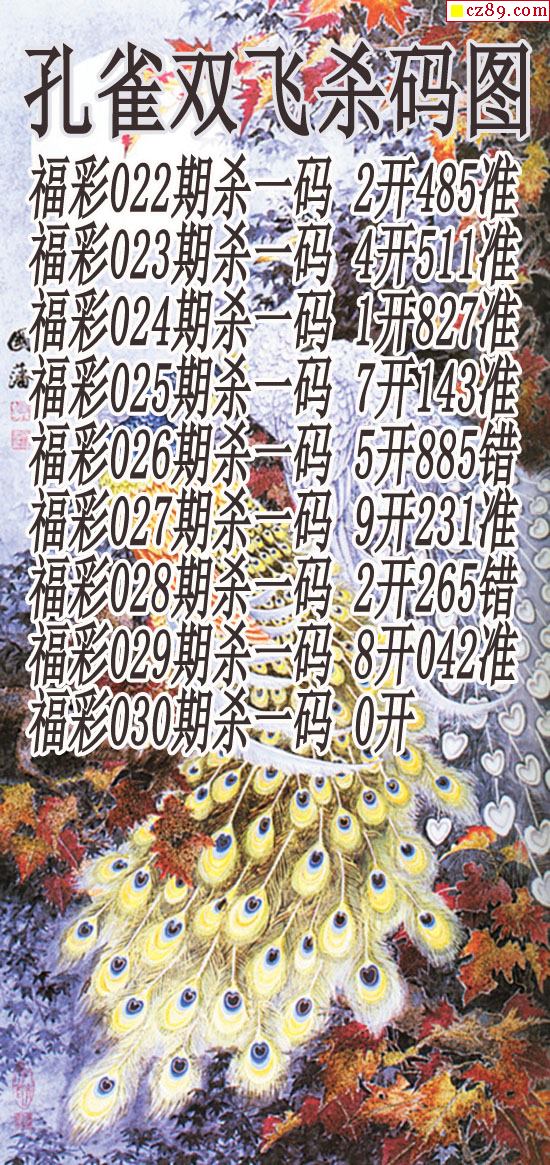 cz89.com
孔雀双飞杀码图
福彩022期杀一码 2开485准
福彩023期杀一码 4开511准
福彩024期杀一码 1开827准
福彩025期杀一码 7开143准
福彩026期杀一码 5开885错
福彩027期杀一码 9开231准
福彩028期杀一码 2开265错
福彩029期杀一码 8开042准
福彩030期杀一码 0开